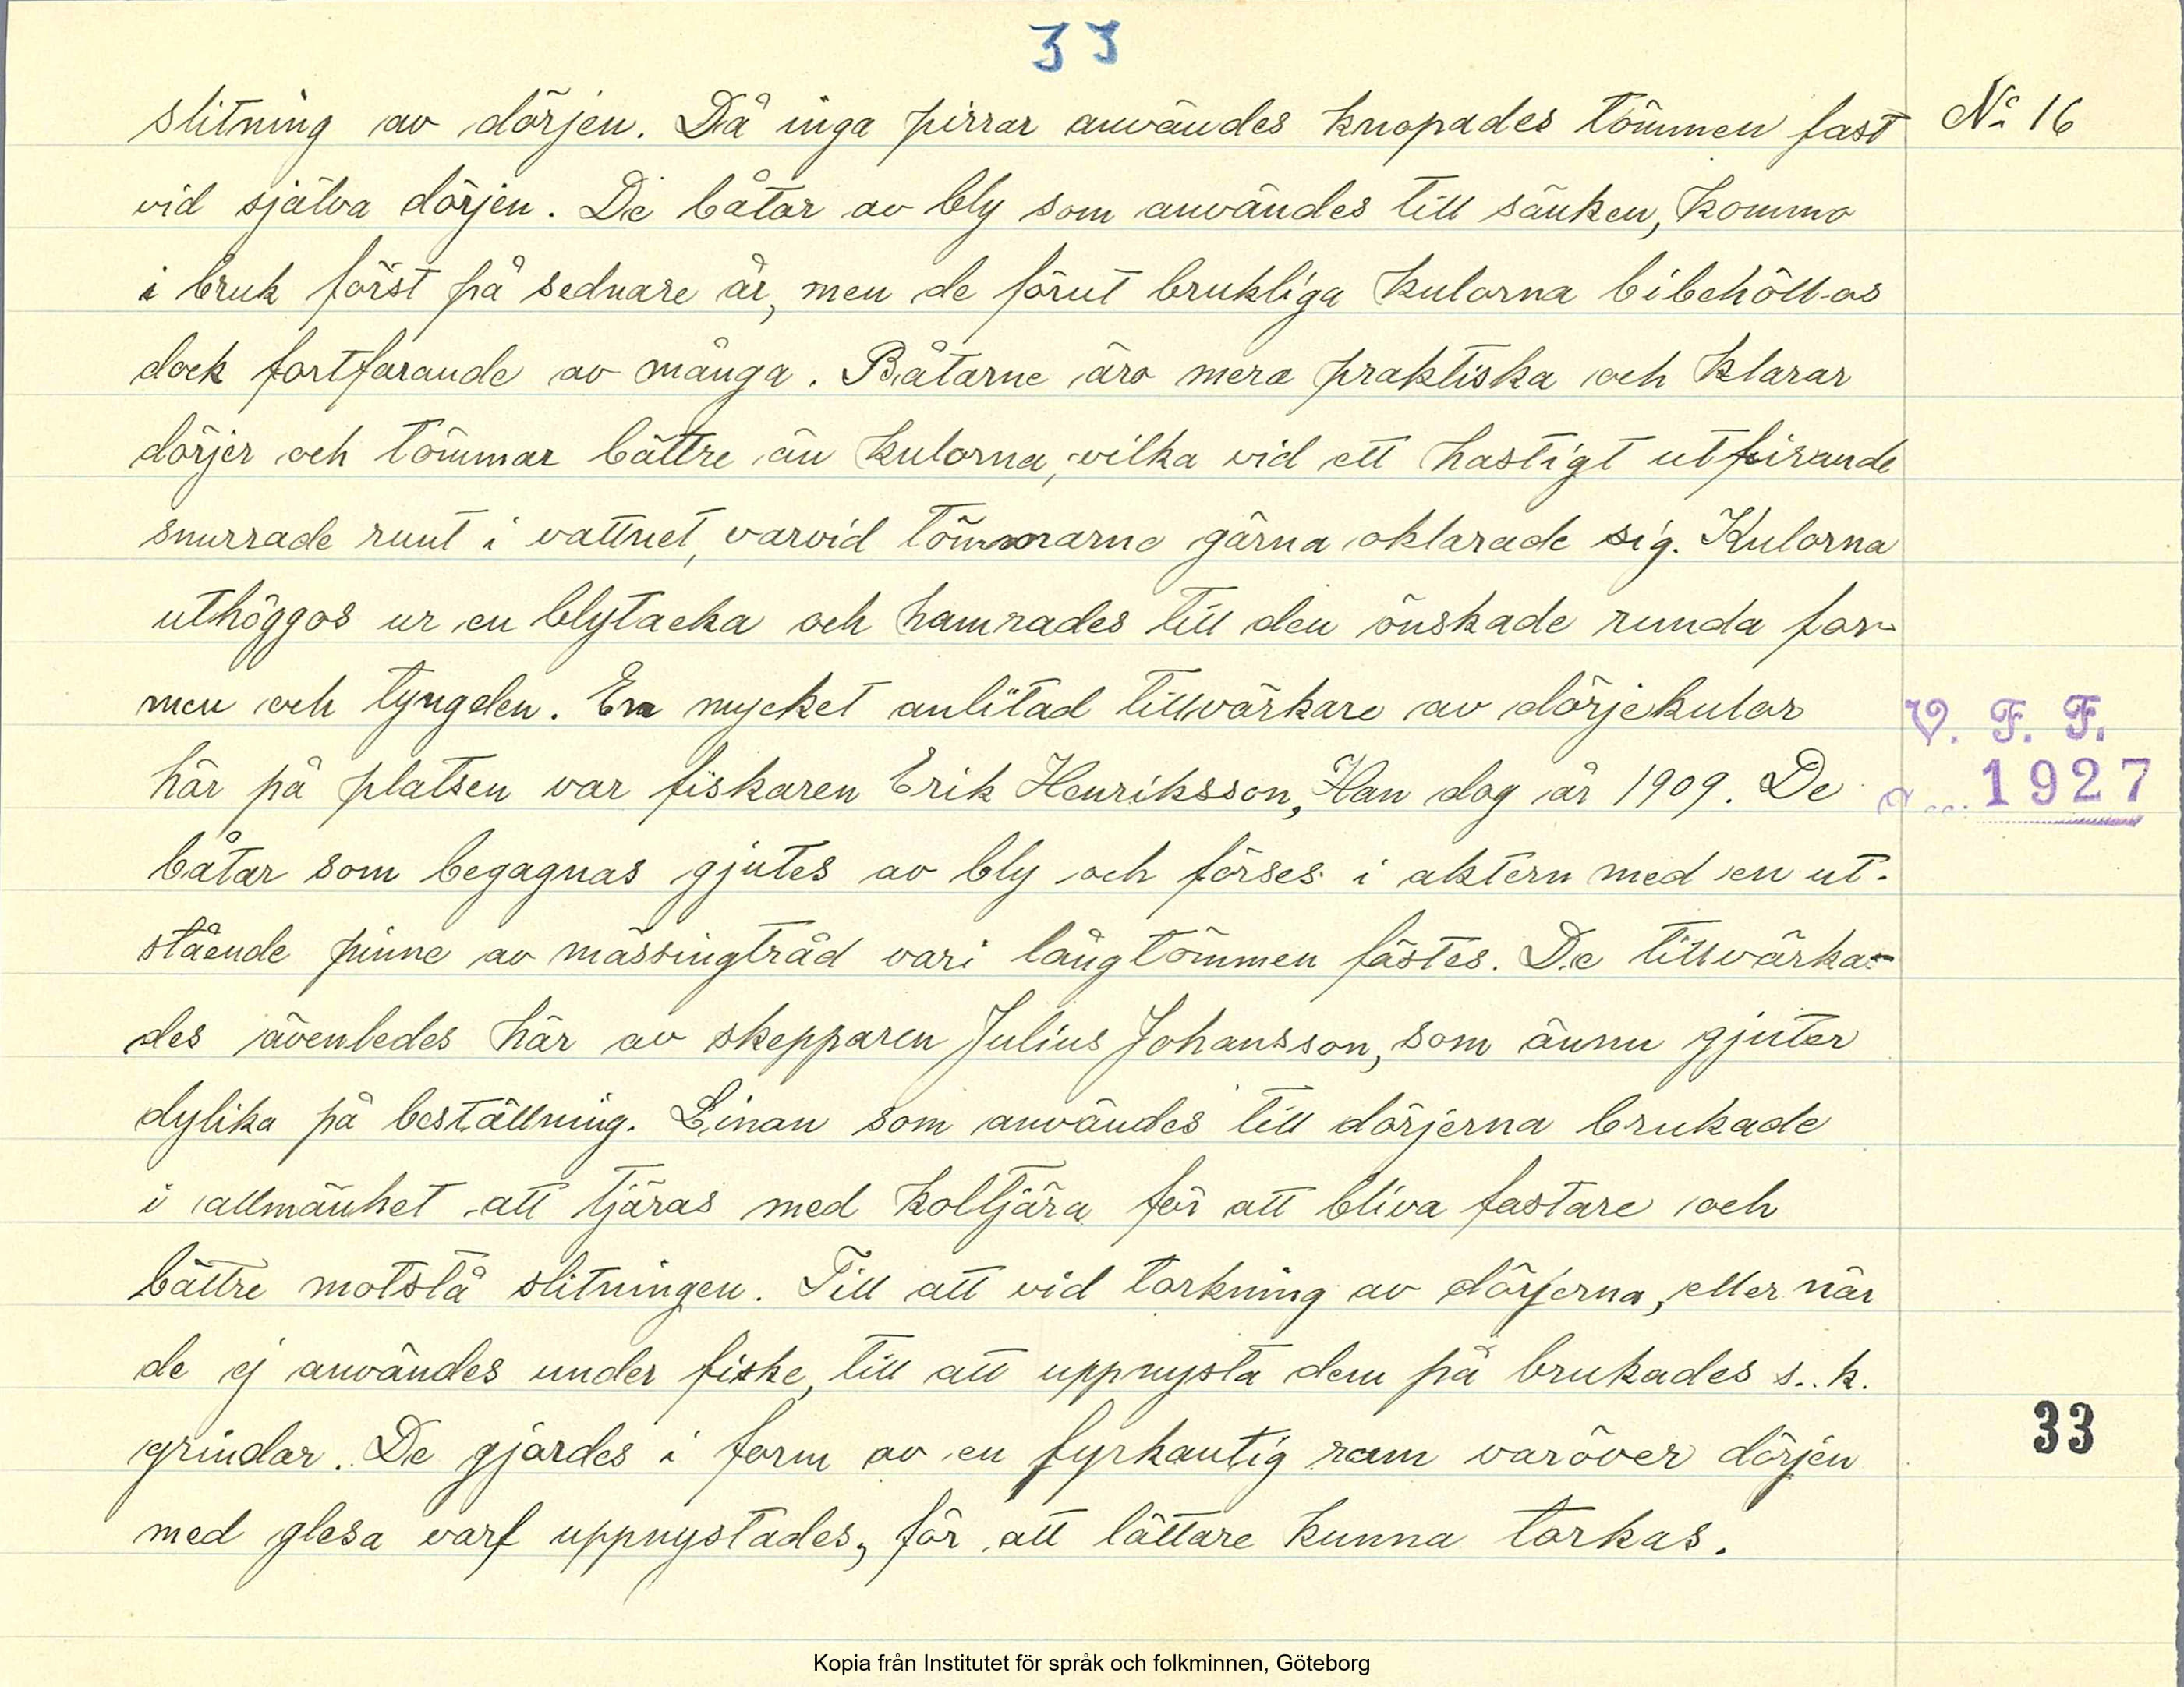 33
slitning av dörjen. Då inga pirrar användes knopades tömmen fast
Nº 16
vid själva dörjen. De båtar av bly som användes till sänken, kommo
i bruk först på sednare år, men de förut brukliga kulorna bibehöllos
dock fortfarande av många. Båtarne äro mera praktiska och klarar
dörjer och tömmar bättre än kulorna, vilka vid ett hastigt utfirande
snurrade runt i vattnet, varvid tömmarne gärna oklarade sig. Kulorna
uthöggos ur en blytacka och hamrades till den önskade runda for-
men och tyngden. En mycket anlitad tillvärkare av dörjekulor
här på platsen var fiskaren Erik Henriksson, Han dog år 1909. De
V. F. F.
1927
båtar som begagnas gjutes av bly och förses i aktern med en ut-
stående pinne av mässingtråd vari långtömmen fästes. De tillvärka-
des ävenledes här av skepparen Julius Johansson, som ännu gjuter
dylika på beställning. Linan som användes till dörjerna brukade
i allmänhet att tjäras med koltjära för att bliva fastare och
bättre motstå slitningen. Till att vid torkning av dörjerna, eller när
de ej användes under fiske, till att uppnysta dem på brukades s. k.
grindar. De gjordes i form av en fyrkantig ram varöver dörjen
33
med glesa varf uppnystades, för att lättare kunna torkas.
Kopia från Institutet för språk och folkminnen, Göteborg